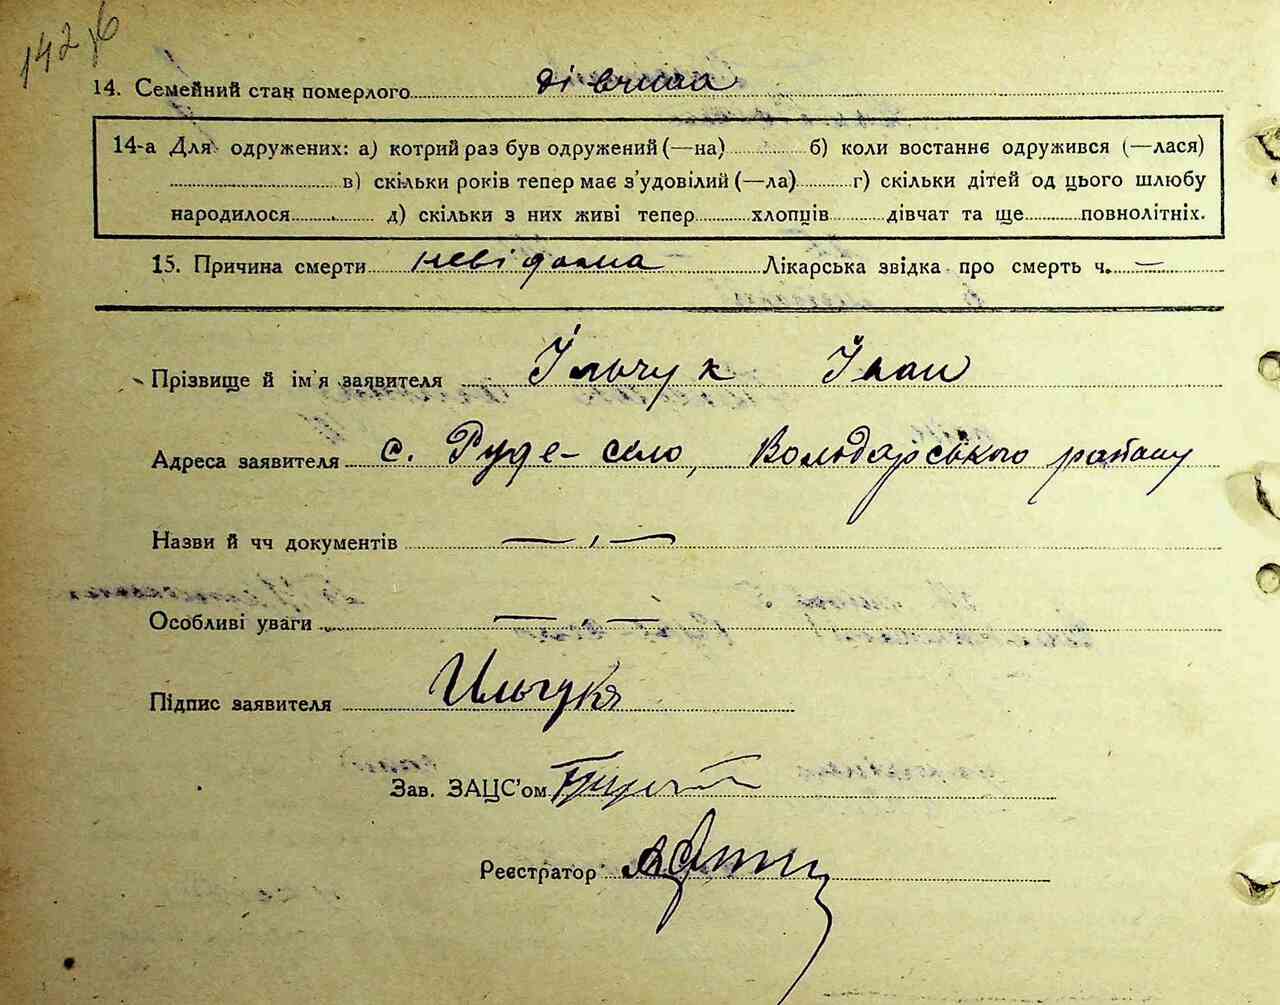 142
14. Семейний стан померлого дівчина
14-а Для одружених: а) котрий раз був одружений (—на) б) коли востаннє одружився (—лася)
в) скільки років тепер має з’удовілий (—ла) г) скільки дітей од цього шлюбу
народилося д) скільки з них живі тепер хлопців дівчат та ще повнолітніх.
15. Причина смерти невідома Лікарська звідка про смерть ч. —
Прізвище й ім’я заявителя Ільчук Іван
Адреса заявителя с. Руде-село, Володарського району
Назви й чч документів —,—
Особливі уваги —,—
Підпис заявителя Ильчукъ
Зав. ЗАЦС’ом
Реєстратор